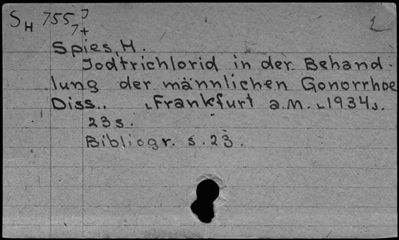 SH 755,7+
Spies, H.
Jodtrichlorid in der Behand-
lung der männlichen Gonorrhoe
Diss.. Frankfurt a.M. 1934.
23 s.
Bibliogr. s. 23.